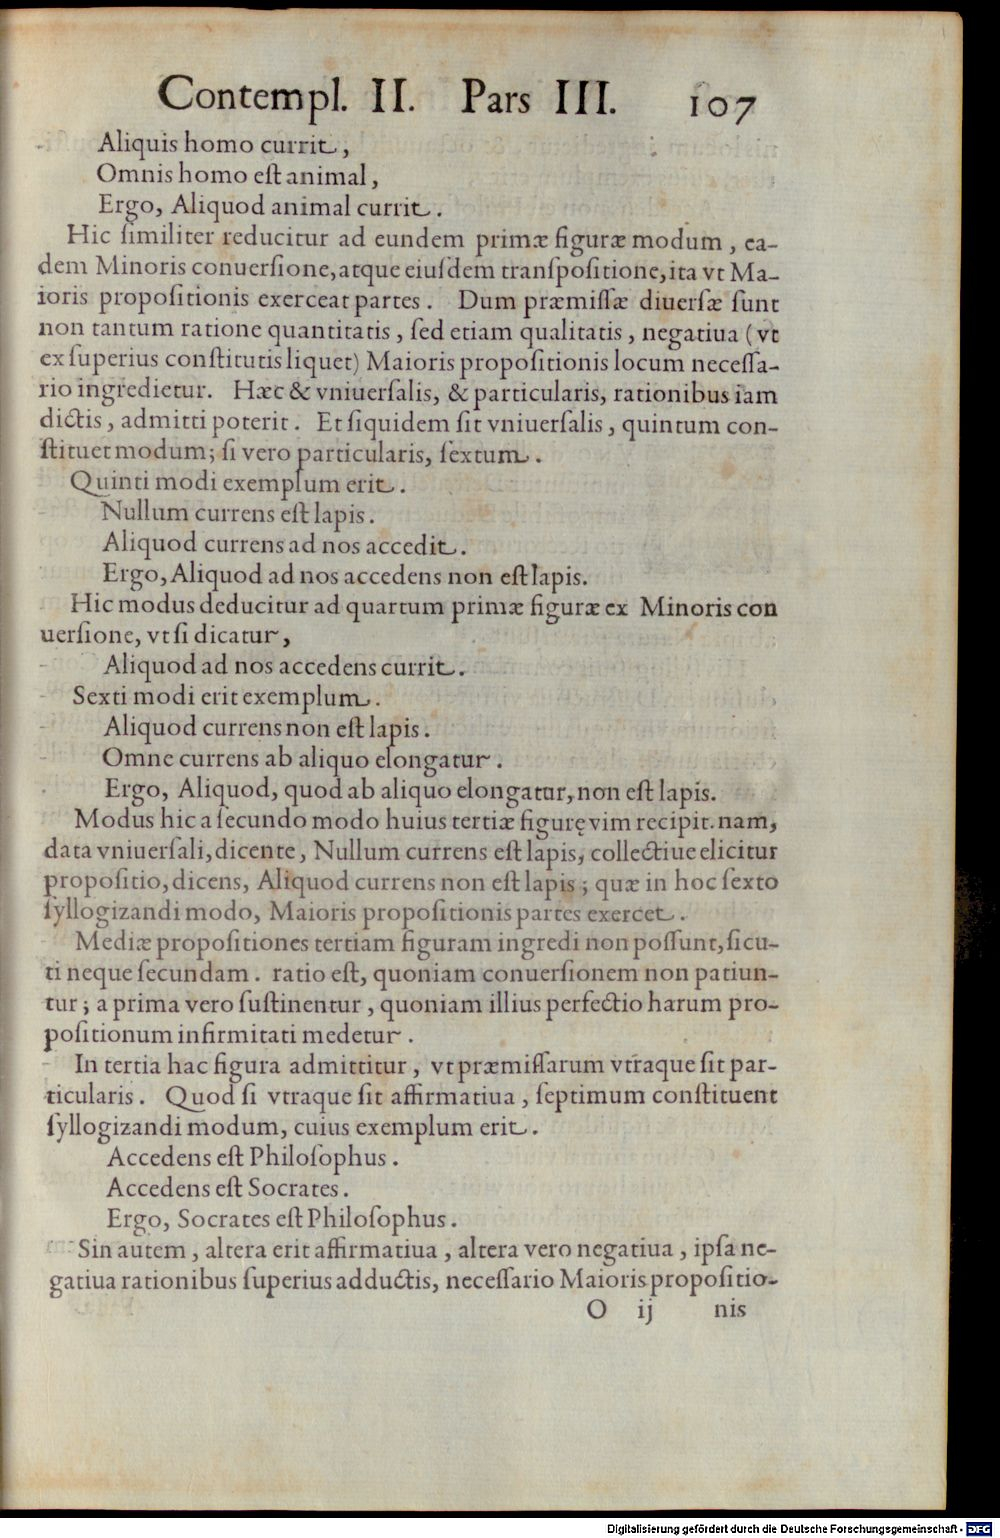 Contempl. II. Pars III. 107
Aliquis homo currit,
Omnis homo eſt animal,
Ergo, Aliquod animal currit.
Hic ſimiliter reducitur ad eundem primæ figuræ modum, ea-
dem Minoris conuerſione, atque eiuſdem tranſpoſitione, ita vt Ma-
ioris propoſitionis exerceat partes. Dum præmiſſæ diuerſæ ſunt
non tantum ratione quantitatis, ſed etiam qualitatis, negatiua (vt
ex ſuperius conſtitutis liquet) Maioris propoſitionis locum neceſſa-
rio ingredietur. Hæc & vniuerſalis, & particularis, rationibus iam
dictis, admitti poterit. Et ſiquidem ſit vniuerſalis, quintum con-
ſtituet modum; ſi vero particularis, ſextum.
Quinti modi exemplum erit.
Nullum currens eſt lapis.
Aliquod currens ad nos accedit.
Ergo, Aliquod ad nos accedens non eſt lapis.
Hic modus deducitur ad quartum primæ figuræ ex Minoris con
uerſione, vt ſi dicatur,
Aliquod ad nos accedens currit.
Sexti modi erit exemplum.
Aliquod currens non eſt lapis.
Omne currens ab aliquo elongatur.
Ergo, Aliquod, quod ab aliquo elongatur, non eſt lapis.
Modus hic a ſecundo modo huius tertiæ figurę vim recipit. nam,
data vniuerſali, dicente, Nullum currens eſt lapis, collectiue elicitur
propoſitio, dicens, Aliquod currens non eſt lapis; quæ in hoc ſexto
ſyllogizandi modo, Maioris propoſitionis partes exercet.
Mediæ propoſitiones tertiam figuram ingredi non poſſunt, ſicu-
ti neque ſecundam. ratio eſt, quoniam conuerſionem non patiun-
tur; a prima vero ſuſtinentur, quoniam illius perfectio harum pro-
poſitionum infirmitati medetur.
In tertia hac figura admittitur, vt præmiſſarum vtraque ſit par-
ticularis. Quod ſi vtraque ſit affirmatiua, ſeptimum conſtituent
ſyllogizandi modum, cuius exemplum erit.
Accedens eſt Philoſophus.
Accedens eſt Socrates.
Ergo, Socrates eſt Philoſophus.
Sin autem, altera erit affirmatiua, altera vero negatiua, ipſa ne-
gatiua rationibus ſuperius adductis, neceſſario Maioris propoſitio-
O ij nis
Digitalisierung gefördert durch die Deutsche Forschungsgemeinschaft - DFG